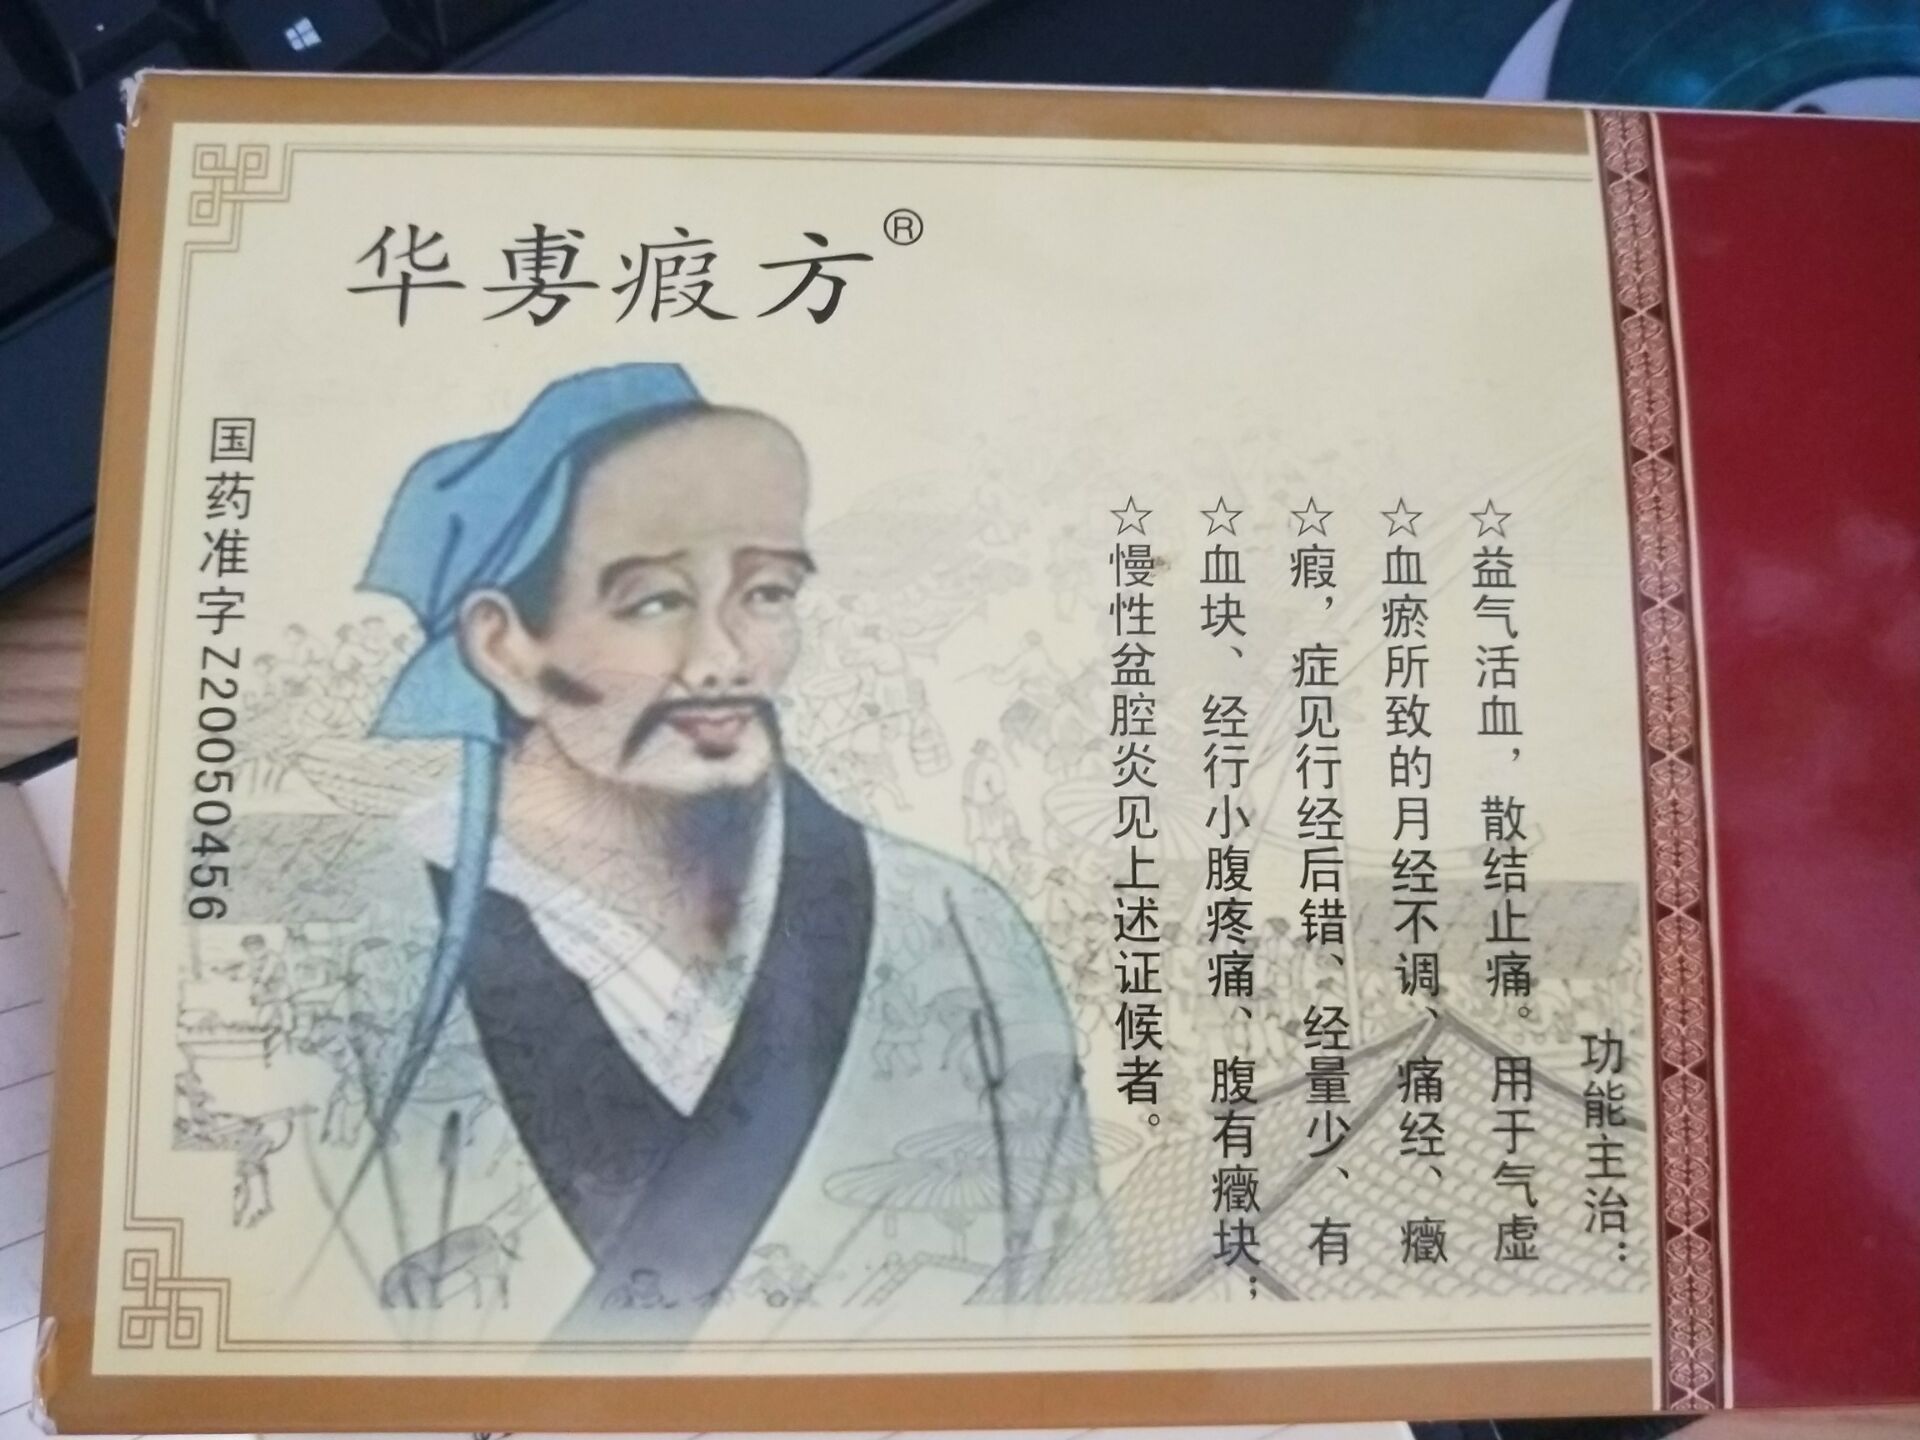 华旉瘕方®
国药准字Z20050456
功能主治：
☆益气活血，散结止痛。用于气虚
☆血瘀所致的月经不调、痛经、癥
☆瘕，症见行经后错、经量少、有
☆血块、经行小腹疼痛、腹有癥块；
☆慢性盆腔炎见上述证候者。